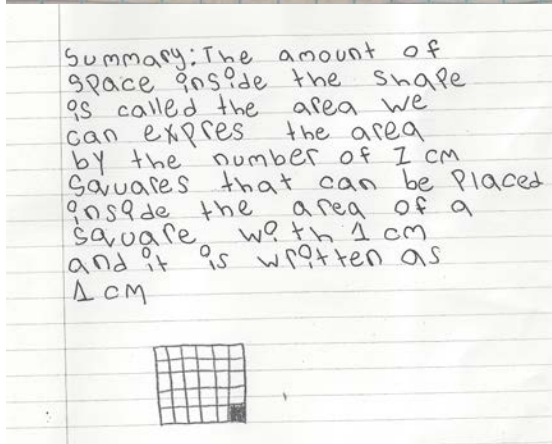 Summary: The amount of
space inside the shape
is called the area we
can expres the area
by the number of 1 cm
Squares that can be Placed
inside the area of a
square with 1 cm
and it is written as
1 cm